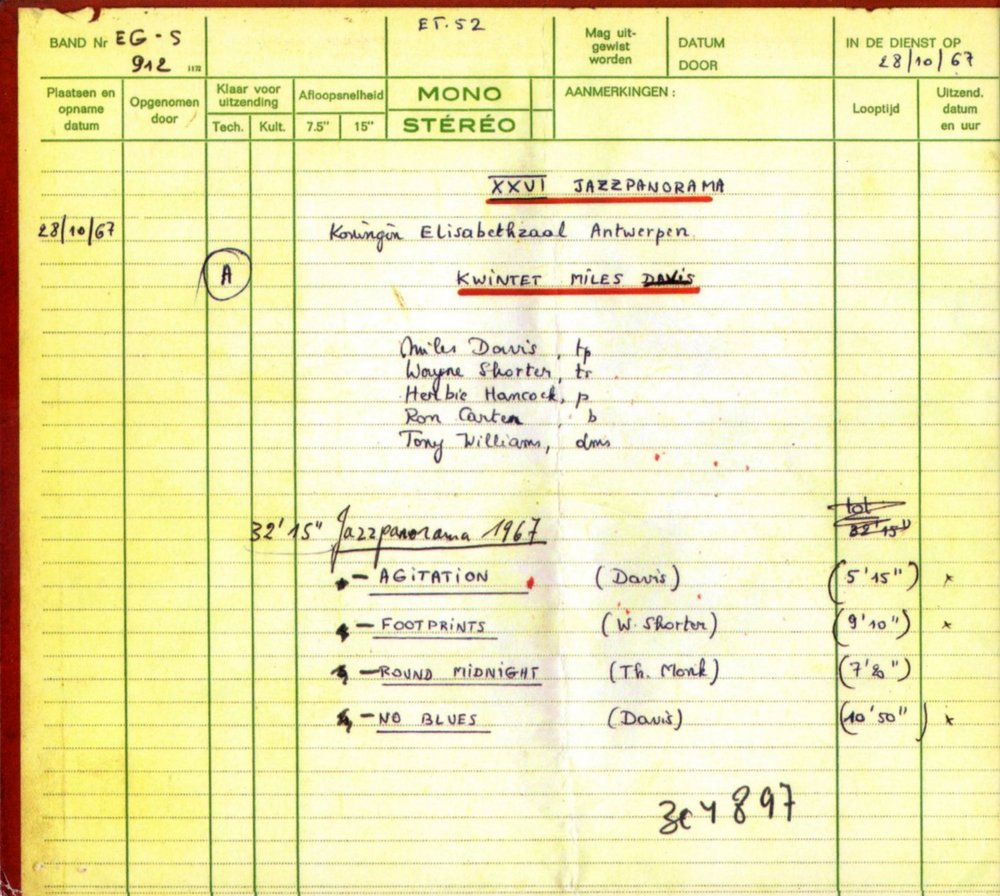 BAND Nr EG-S
912 1172
ET.52
Mag uit-
gewist
worden
DATUM
DOOR
IN DE DIENST OP
28/10/67
Plaatsen en
opname
datum
Opgenomen
door
Klaar voor
uitzending
Tech. Kult.
Afloopsnelheid
7.5" 15"
MONO
STÉRÉO
AANMERKINGEN :
Looptijd
Uitzend.
datum
en uur
XXVI JAZZPANORAMA
28/10/67 Koningin Elisabethzaal Antwerpen.
A KWINTET MILES DAVIS
Miles Davis, tp
Wayne Shorter, ts
Herbie Hancock, p
Ron Carter, b
Tony Williams, dms
tot
32'15"
32'15" Jazzpanorama 1967
- AGITATION (Davis) (5'15") x
- FOOTPRINTS (W. Shorter) (9'10") x
- ROUND MIDNIGHT (Th. Monk) (7'20")
- NO BLUES (Davis) (10'50") x
897